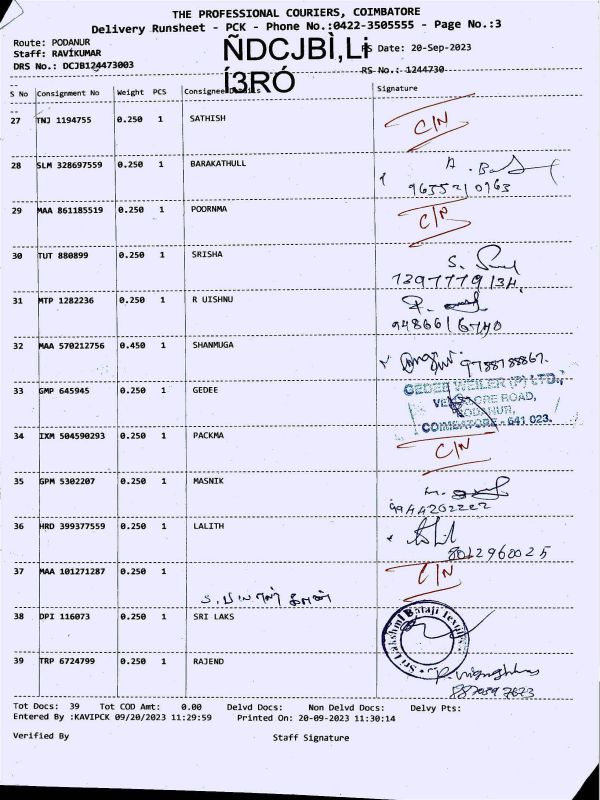 THE PROFESSIONAL COURIERS, COIMBATORE
Delivery Runsheet - PCK - Phone No.:0422-3505555 - Page No.:3
Route: PODANUR
Staff: RAVIKUMAR
ÑDCJBÌ,Li
RS Date: 20-Sep-2023
DRS No.: DCJB124473003
Í3RÓ
RS No.: 1244730
S No Consignment No Weight PCS Consignee Details Signature
27 TNJ 1194755 0.250 1 SATHISH C/N
28 SLM 328697559 0.250 1 BARAKATHULL
9655210963
29 MAA 861185519 0.250 1 POORNMA
30 TUT 880899 0.250 1 SRISHA
31 MTP 1282236 0.250 1 R UISHNU
9486616740
32 MAA 570212756 0.450 1 SHANMUGA 9788788867.
33 GMP 645945 0.250 1 GEDEE
GEDEE WEILER (P) LTD.,
ROAD,
PODANUR,
COIMBATORE - 641 023.
34 IXM 504590293 0.250 1 PACKMA C/N
35 GPM 5302207 0.250 1 MASNIK
9944202222
36 HRD 399377559 0.250 1 LALITH
8012960025
37 MAA 101271287 0.250 1 C/N
38 DPI 116073 0.250 1 SRI LAKS
Sri Lakshmi Balaji Textiles
39 TRP 6724799 0.250 1 RAJEND
Tot Docs: 39 Tot COD Amt: 0.00 Delvd Docs: Non Delvd Docs: Delvy Pts:
Entered By :KAVIPCK 09/20/2023 11:29:59 Printed On: 20-09-2023 11:30:14
Verified By Staff Signature